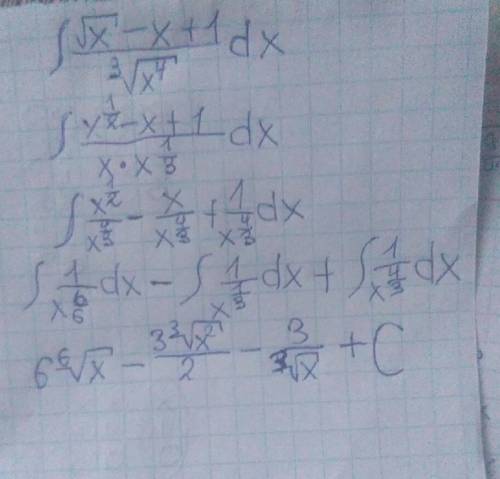 ∫ (√x − x + 1)/∛(x⁴) dx
∫ (x^(1/2) − x + 1)/(x · x^(1/3)) dx
∫ x^(1/2)/x^(4/3) − x/x^(4/3) + 1/x^(4/3) dx
∫ 1/x^(6/6) dx − ∫ 1/x^(1/3) dx + ∫ 1/x^(4/3) dx
6 ⁶√x − 3∛(x²)/2 − 3/∛x + C